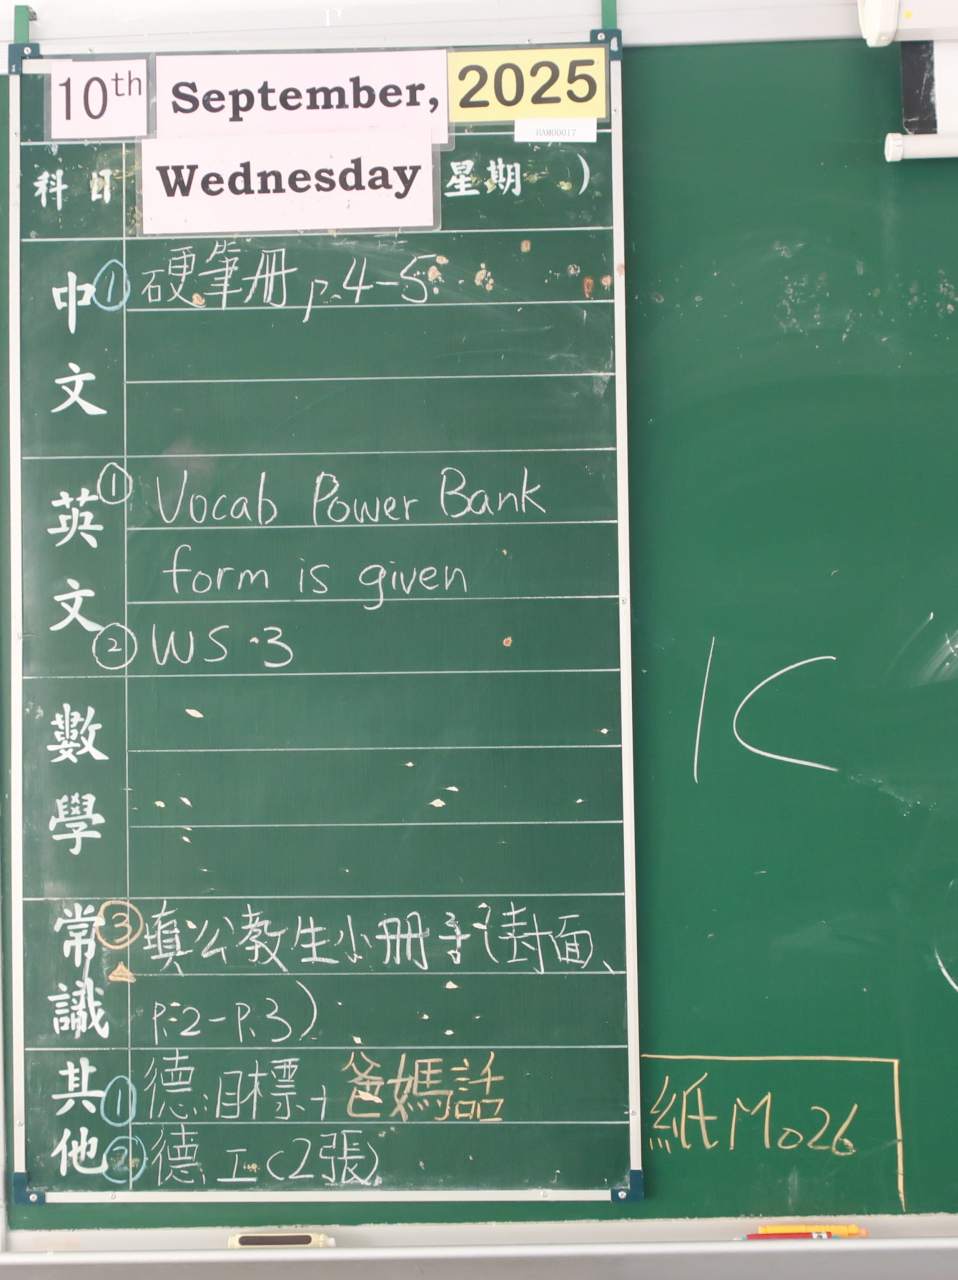 10th September, 2025
HAM00017
科目 Wednesday 星期 )
中文
① 硬筆冊 p.4-5
英文
① Vocab Power Bank
form is given
② WS 3
數學
常識
③ 填公教生小冊子(封面、
p.2-p.3)
其他
① 德:目標+爸媽話
② 德工(2張)
1C
紙 M026